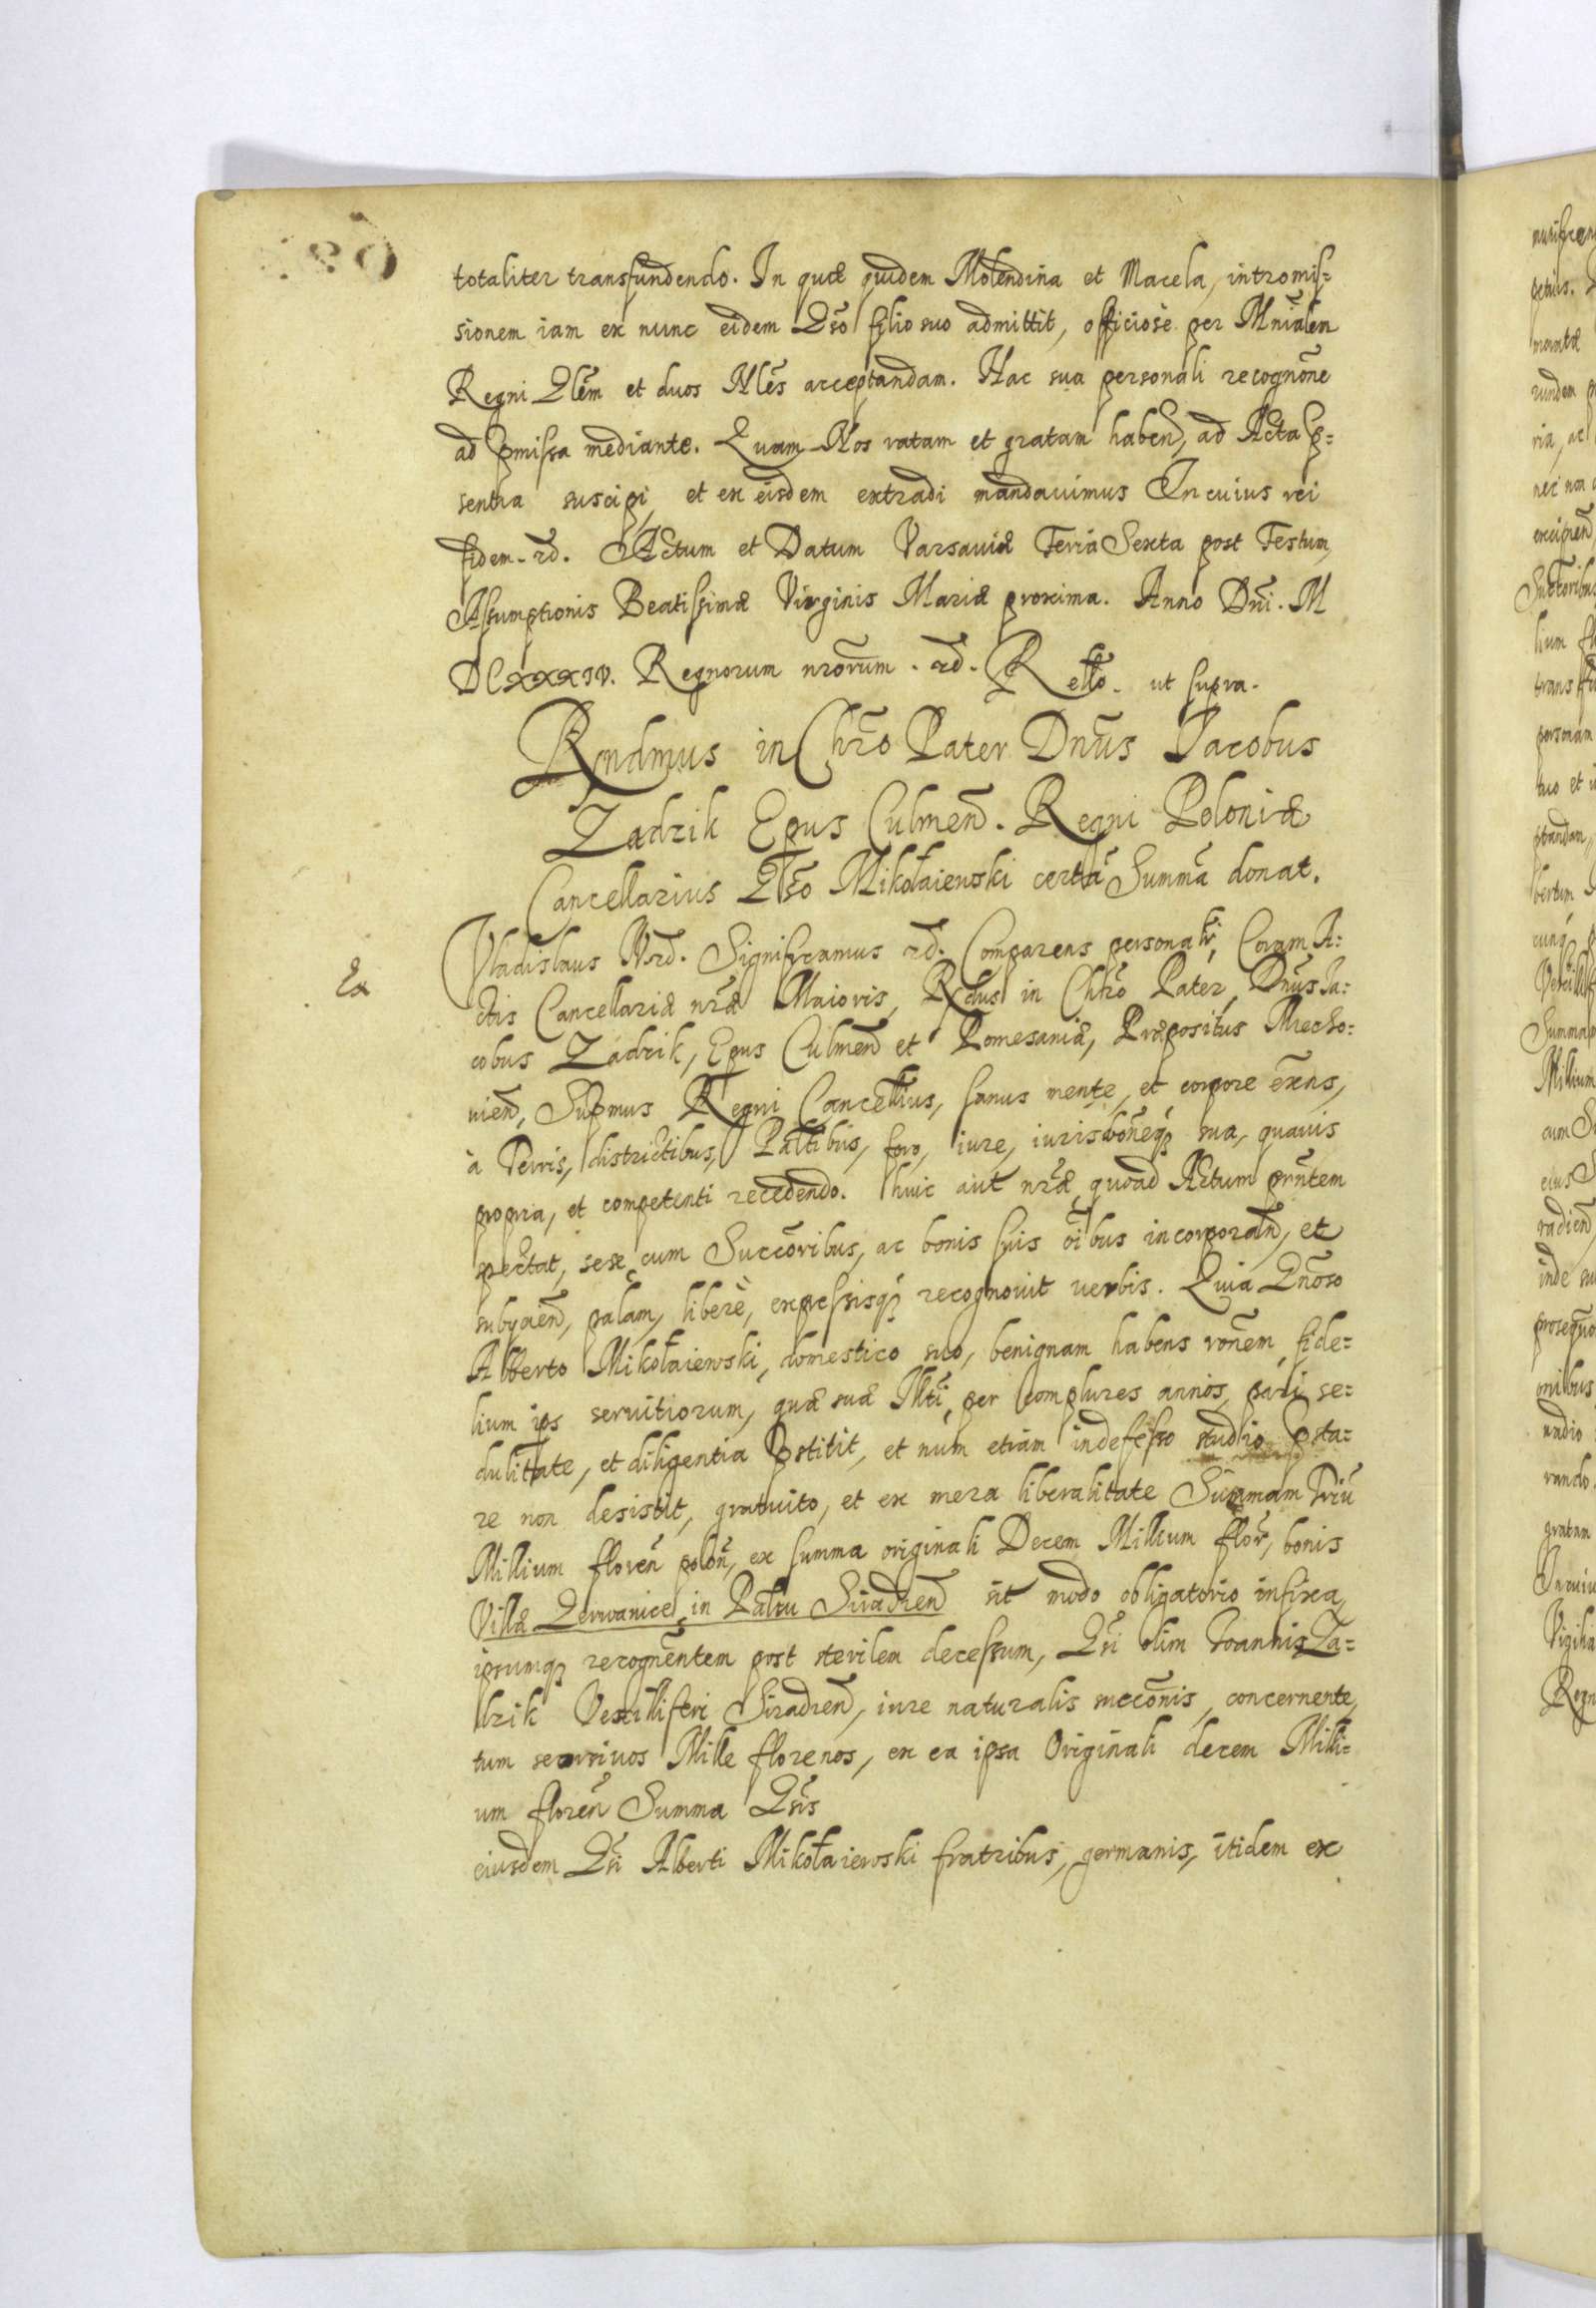 totaliter transfundendo. In quæ quidem Molendina et Macela, intromis=
sionem iam ex nunc eidem Gso filio suo admittit, officiose per Mnialem
Regni Glem et duos Nles acceptandam. Hac sua personali recognõne
ad pmissa mediante. Quam Nos ratam et gratam haben, ad Acta p=
sentia suscipi, et ex eisdem extradi mandauimus In cuius rei
fidem. rd. Actum et Datum Varsauiæ Feria Sexta post Festum
Assumptionis Beatissimæ Virginis Mariæ proxima. Anno Dni. M
DCXXXIV. Regnorum nrorum. rd. Rello. ut supra.
Rndmus in Chro Pater Dnus Jacobus
Zadzik Epus Culmen. Regni Poloniæ
Cancellarius Gso Mikołaiewski certa Summa donat.
Vladislaus Nrd. Significamus rd. Comparens personalr, Coram A=
ctis Cancellariæ nræ Maioris, Rdus in Chro Pater, Dnus Ja=
cobus Zadzik, Epus Culmen et Pomesaniæ, Præpositus Miecho=
uien, Supmus Regni Cancellrius, sanus mente, et corpore exns,
à Terris, districtibus, Paltibus, foro, iure, iurisdonéq sua, quauis
propria, et competenti recedendo. huic aut nræ quoad Actum prntem
spectat, sese cum Succoribus, ac bonis suis oibus incorporan, et
subycien, palam, liberè, expressisq recognouit uerbis. Quia Gnoso
Alberto Mikołaiewski, domestico suo, benignam habens ronem fide=
lium ips seruitiorum, quæ suæ Mlti, per complures annos, pari se=
dulitate, et diligentia pstitit, et num etiam indefesso studio psta=
re non desistit, gratuito, et ex mera liberalitate Summam Triu
Millium floren polon, ex summa originali Decem Millium flor, bonis
Villæ Zerwanice in Paltu Siradien sit modo obligatorio infixa,
ipsumq recognentem post sterilem decessum, Gsi olim Joannis Za=
dzik Vexilliferi Siradien, iure naturalis succonis, concernente,
tum seorsiuos Mille florenos, ex ea ipsa Originali decem Milli=
um floren Summa Gsis
eiusdem Gsi Alberti Mikołaiewski fratribus, germanis, itidem ex